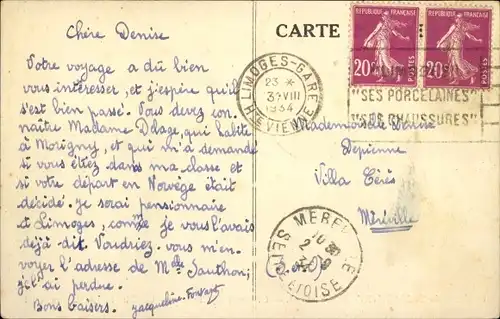 Chère Denise
Votre voyage a dû bien
vous intéresser, et j'espère qu'il
s'est bien passé. Vous devez con-
naître Madame Delage, qui habite
à Morigny, et qui m'a demandé
si vous étiez dans ma classe et
si votre départ en Norvège était
décidé. Je serai pensionnaire
et Limoges, comme je vous l'avais
déjà dit. Voudriez-vous m'en-
voyer l'adresse de Melle Sauthon;
je l'ai perdue.
Bons baisers. Jacqueline
CARTE
REPUBLIQUE FRANÇAISE
20c
POSTES
REPUBLIQUE FRANÇAISE
20c
POSTES
LIMOGES-GARE
23 *
3 VIII
1934
HTE VIENNE
"SES PORCELAINES"
"SES CHAUSSURES"
Mademoiselle Denise
Depienne
Villa Cérès
Méréville
S. et O.
MEREVILLE
SEINE ET OISE